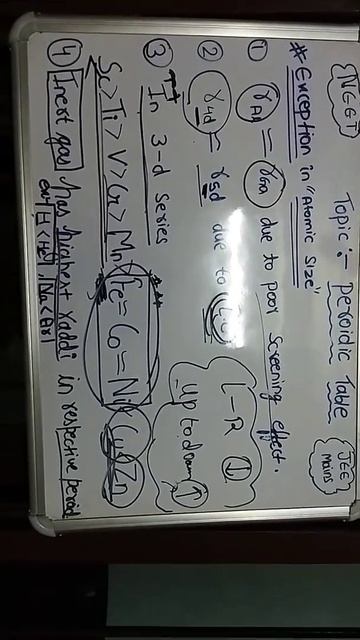 NEET
Topic :- Peroidic Table
JEE Mains
# Exception in "Atomic Size"
① rAl = rGa due to poor Screening effect.
② r4d = r5d due to
L-R ↓
Up to down ↑
③ In 3-d series
Sc > Ti > V > Cr > Mn > Fe = Co = Ni < Cu < Zn
④ Inert gas has highest raddi in respective period